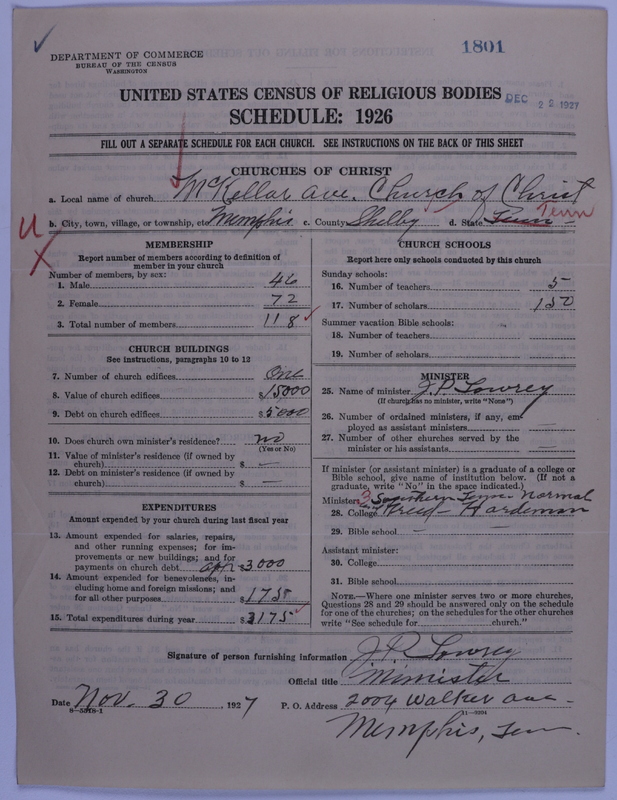 1801
DEPARTMENT OF COMMERCE
BUREAU OF THE CENSUS
WASHINGTON
UNITED STATES CENSUS OF RELIGIOUS BODIES
DEC 22 1927
SCHEDULE: 1926
FILL OUT A SEPARATE SCHEDULE FOR EACH CHURCH. SEE INSTRUCTIONS ON THE BACK OF THIS SHEET
CHURCHES OF CHRIST
a. Local name of church McKellar Ave. Church of Christ
b. City, town, village, or township, etc Memphis c. County Shelby d. State Tenn Tenn
MEMBERSHIP
Report number of members according to definition of
member in your church
Number of members, by sex:
1. Male 46
2. Female 72
3. Total number of members 118
CHURCH BUILDINGS
See instructions, paragraphs 10 to 12
7. Number of church edifices One
8. Value of church edifices $15000
9. Debt on church edifices $5000
10. Does church own minister's residence? no
(Yes or No)
11. Value of minister's residence (if owned by
church) $ —
12. Debt on minister's residence (if owned by
church) $ —
EXPENDITURES
Amount expended by your church during last fiscal year
13. Amount expended for salaries, repairs,
and other running expenses; for im-
provements or new buildings; and for
payments on church debt $3000
14. Amount expended for benevolences, in-
cluding home and foreign missions; and
for all other purposes $
15. Total expenditures during year $3175
CHURCH SCHOOLS
Report here only schools conducted by this church
Sunday schools:
16. Number of teachers 5
17. Number of scholars
Summer vacation Bible schools:
18. Number of teachers
19. Number of scholars
MINISTER
25. Name of minister J.P. Lowrey
(If church has no minister, write "None")
26. Number of ordained ministers, if any, em-
ployed as assistant ministers —
27. Number of other churches served by the
minister or his assistants —
If minister (or assistant minister) is a graduate of a college or
Bible school, give name of institution below. (If not a
graduate, write "No" in the space indicated.)
Minister: Southern Tenn. Normal
28. College Freed-Hardeman
29. Bible school —
Assistant minister:
30. College
31. Bible school
NOTE.—Where one minister serves two or more churches,
Questions 28 and 29 should be answered only on the schedule
for one of the churches; on the schedules for the other churches
write "See schedule for church."
Signature of person furnishing information J.P. Lowrey
Official title Minister
Date Nov. 30 1927 P. O. Address 2004 Walker Ave-
11—3204
Memphis, Tenn.